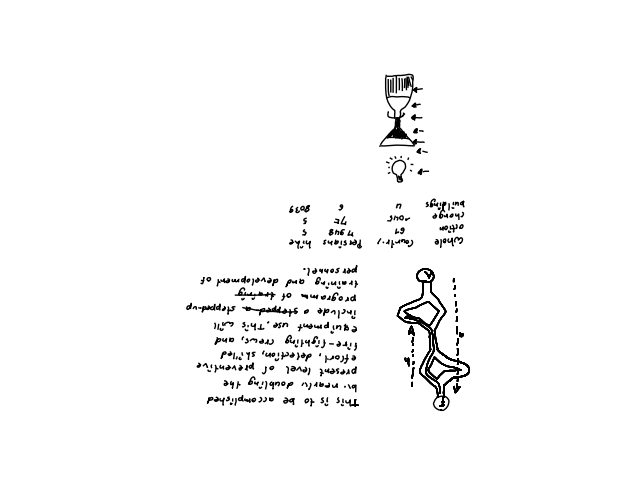 This is to be accomplished
by nearly doubling the
present level of preventive
effort, detection, skilled
fire-fighting crews, and
equipment use. This will
include a stepped a stepped-up
programm of training
training and development of
personnel.
Whole Country Persians hike
action 61 7948 5
change 1045 5
buildings 6 8039